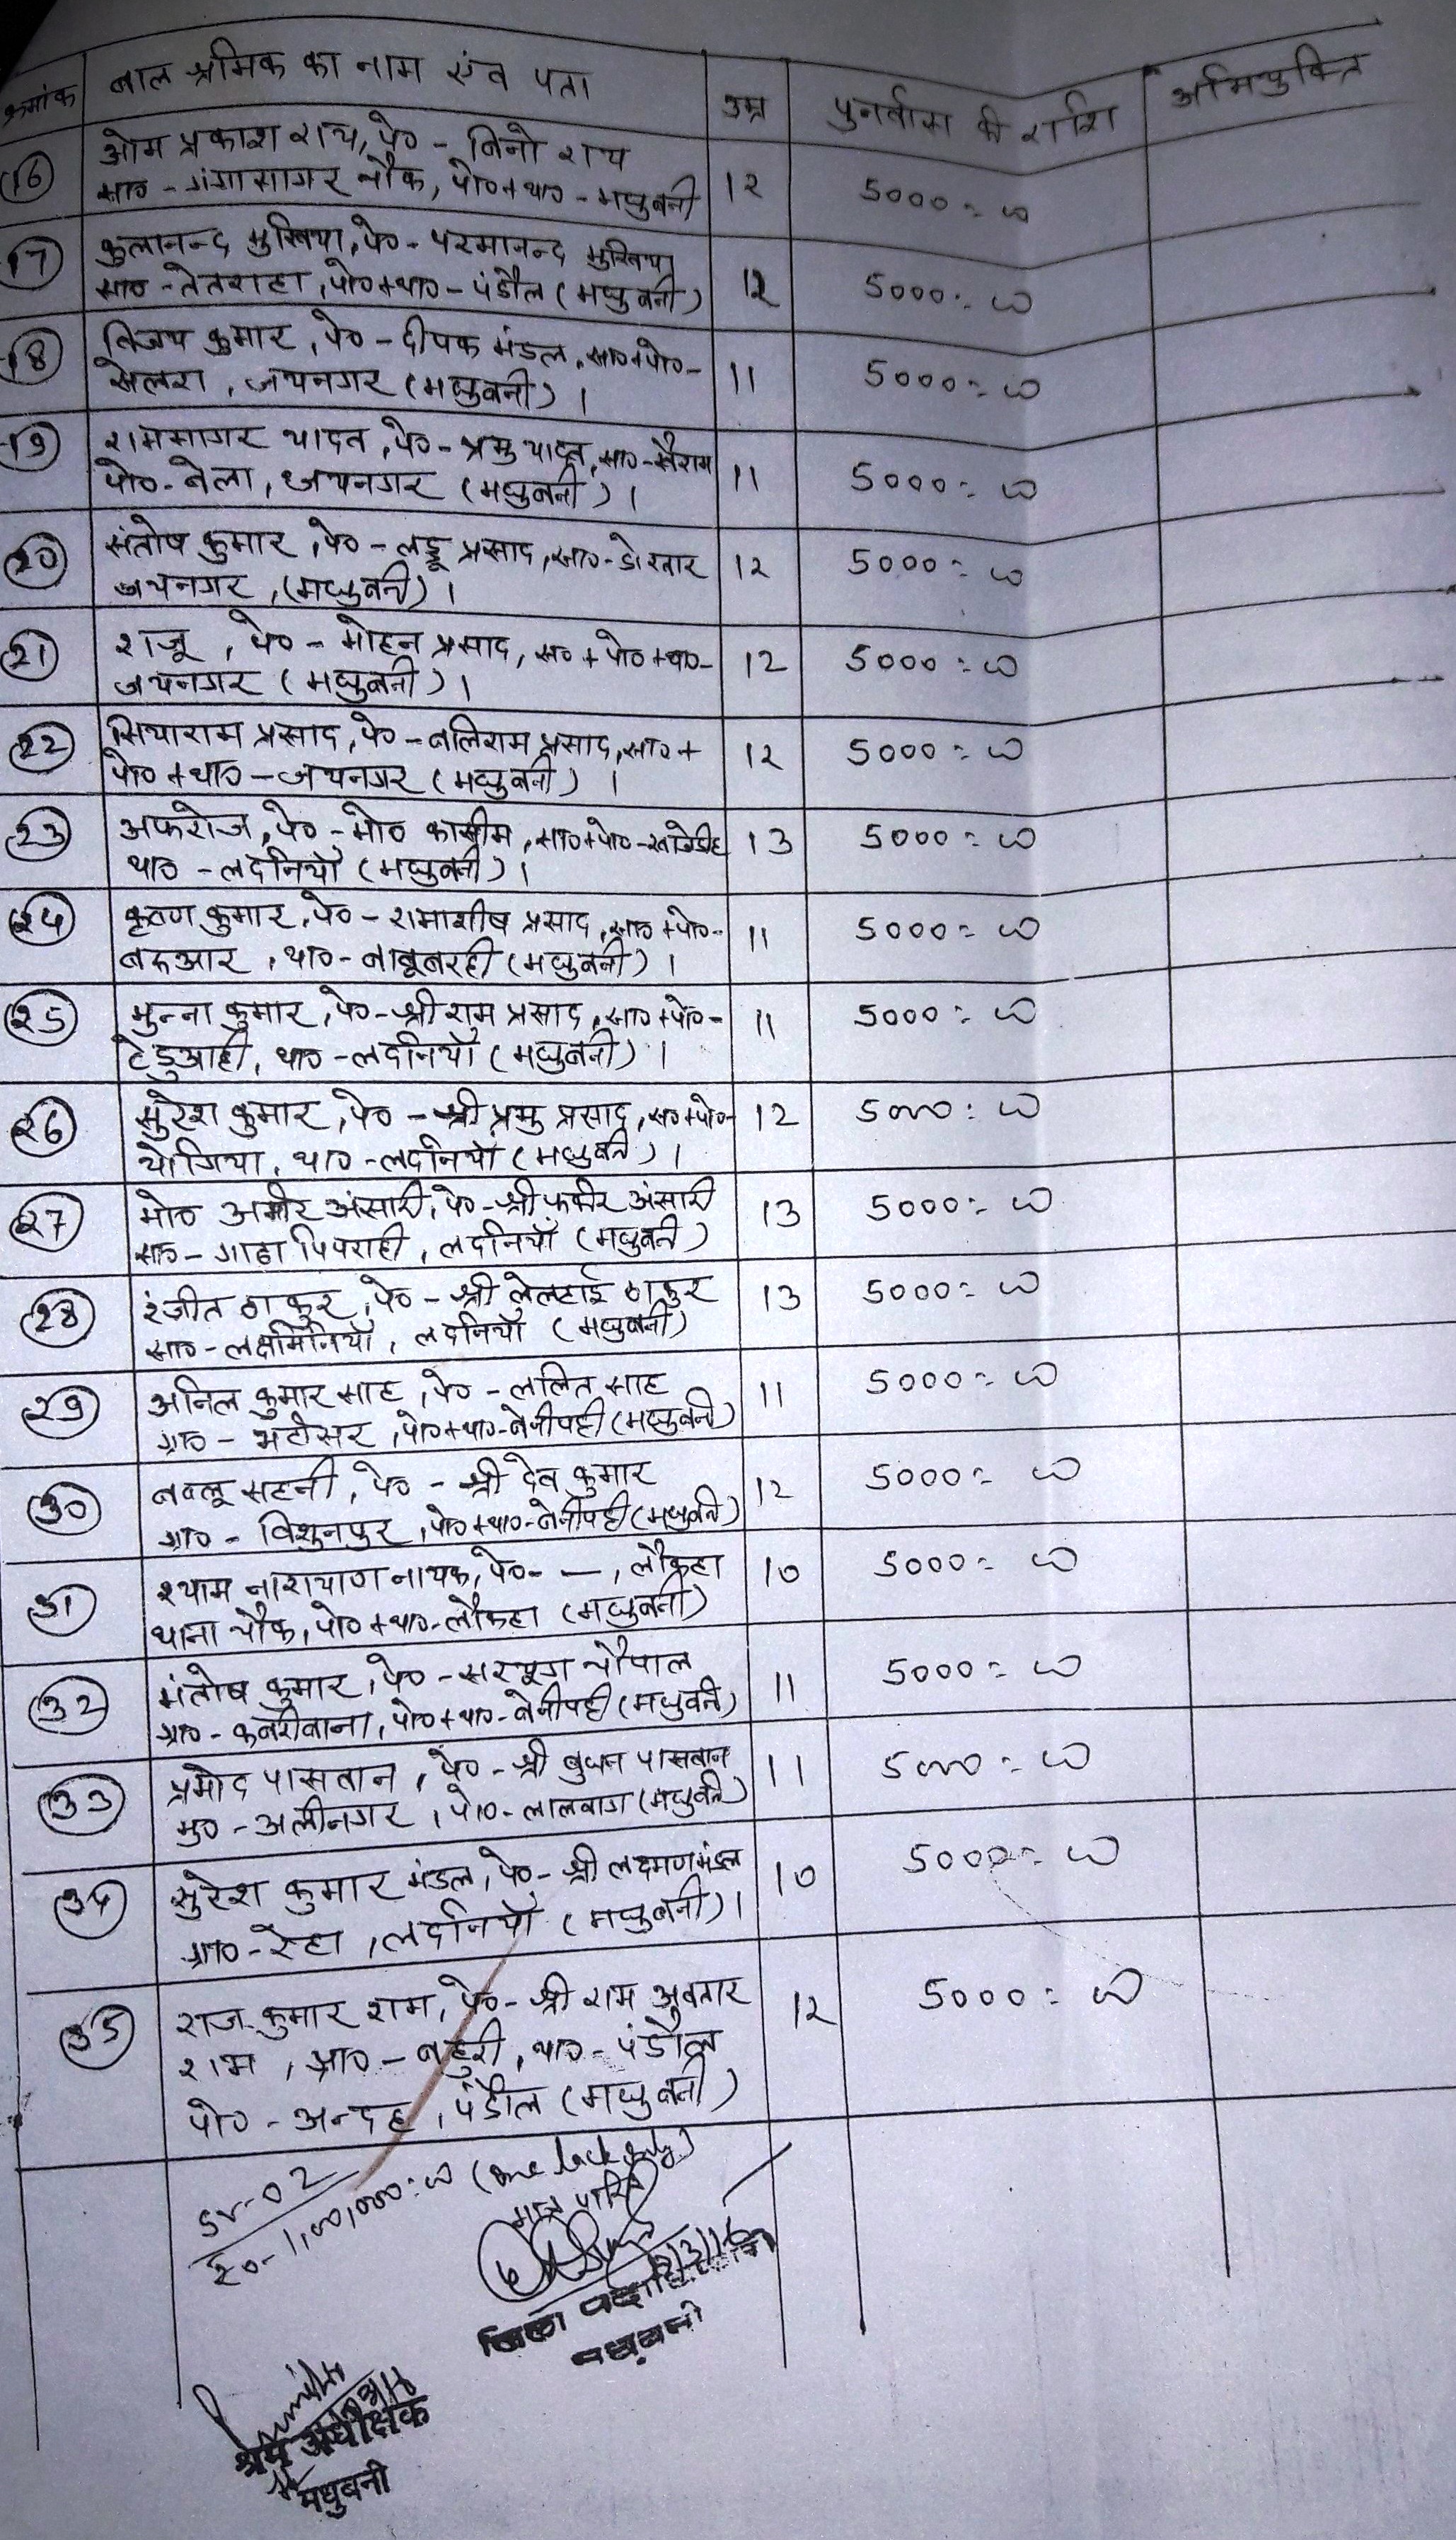 क्रमांक बाल श्रमिक का नाम एंव पता उम्र पुनर्वास की राशि अभियुक्ति
16 ओम प्रकाश राय, पे० - विनो राय
सा० - गंगासागर चौक, पो०+था० - मधुबनी 12 5000=00
17 कुलानन्द मुखिया, पे० - परमानन्द मुखिया
सा० - तेतराहा, पो०+था० - पंडौल (मधुबनी) 12 5000=00
18 विजय कुमार, पे० - दीपक मंडल, सा०+पो०-
सेलरा, जयनगर (मधुबनी) । 11 5000=00
19 रामसागर यादव, पे० - प्रभु यादव, सा० - सैराम
पो० - बेला, जयनगर (मधुबनी) । 11 5000=00
20 संतोष कुमार, पे० - लड्डू प्रसाद, सा० - डोरवार
जयनगर, (मधुबनी) । 12 5000=00
21 राजू, पे० - मोहन प्रसाद, सा०+पो०+था०-
जयनगर (मधुबनी) । 12 5000=00
22 सियाराम प्रसाद, पे० - बलिराम प्रसाद, सा०+
पो०+था० - जयनगर (मधुबनी) । 12 5000=00
23 अफरोज, पे० - मो० कासीम, सा०+पो०-
था० - लदनियाँ (मधुबनी) । 13 5000=00
24 कृष्ण कुमार, पे० - रामाशीष प्रसाद, सा०+पो०-
बरुआर, था० - बाबूबरही (मधुबनी) । 11 5000=00
25 मुन्ना कुमार, पे० - श्री राम प्रसाद, सा०+पो०-
टेड़ुआही, था० - लदनियाँ (मधुबनी) । 11 5000=00
26 सुरेश कुमार, पे० - श्री प्रभु प्रसाद, सा०+पो०-
योगिया, था० - लदनियाँ (मधुबनी) । 12 5000=00
27 मो० अमीर अंसारी, पे० - श्री फकीर अंसारी
सा० - गाढा पिपराही, लदनियाँ (मधुबनी) 13 5000=00
28 रंजीत ठाकुर, पे० - श्री ठाकुर
सा० - लक्ष्मिनियाँ, लदनियाँ (मधुबनी) 13 5000=00
29 अनिल कुमार साह, पे० - ललित साह
ग्रा० - भटीसर, पो०+था० - बेनीपट्टी (मधुबनी) 11 5000=00
30 बब्लू सहनी, पे० - श्री देव कुमार
ग्रा० - विशुनपुर, पो०+था० - बेनीपट्टी (मधुबनी) 12 5000=00
31 श्याम नारायाण नायक, पे० - —, लौकहा
थाना चौक, पो०+था० - लौकहा (मधुबनी) 10 5000=00
32 मंतोष कुमार, पे० - सरयूग चौपाल
ग्रा० - कनरीवाना, पो०+था० - बेनीपट्टी (मधुबनी) 11 5000=00
33 प्रमोद पासवान, पे० - श्री बुधन पासवान
मु० - अलीनगर, पो० - लालबाग (मधुबनी) 11 5000=00
34 सुरेश कुमार मंडल, पे० - श्री लक्ष्मण मंडल
ग्रा० - रेहा, लदनियाँ (मधुबनी) । 10 5000=00
35 राज कुमार राम, पे० - श्री राम अवतार
राम, ग्रा० - बहुरी, था० - पंडौल
पो० - अन्दह, पंडौल (मधुबनी) 12 5000=00
रु०-1,00,000=00 (one lack only)
मात्र पारित
जिला पदाधिकारी
मधुबनी
श्रम अधीक्षक
मधुबनी